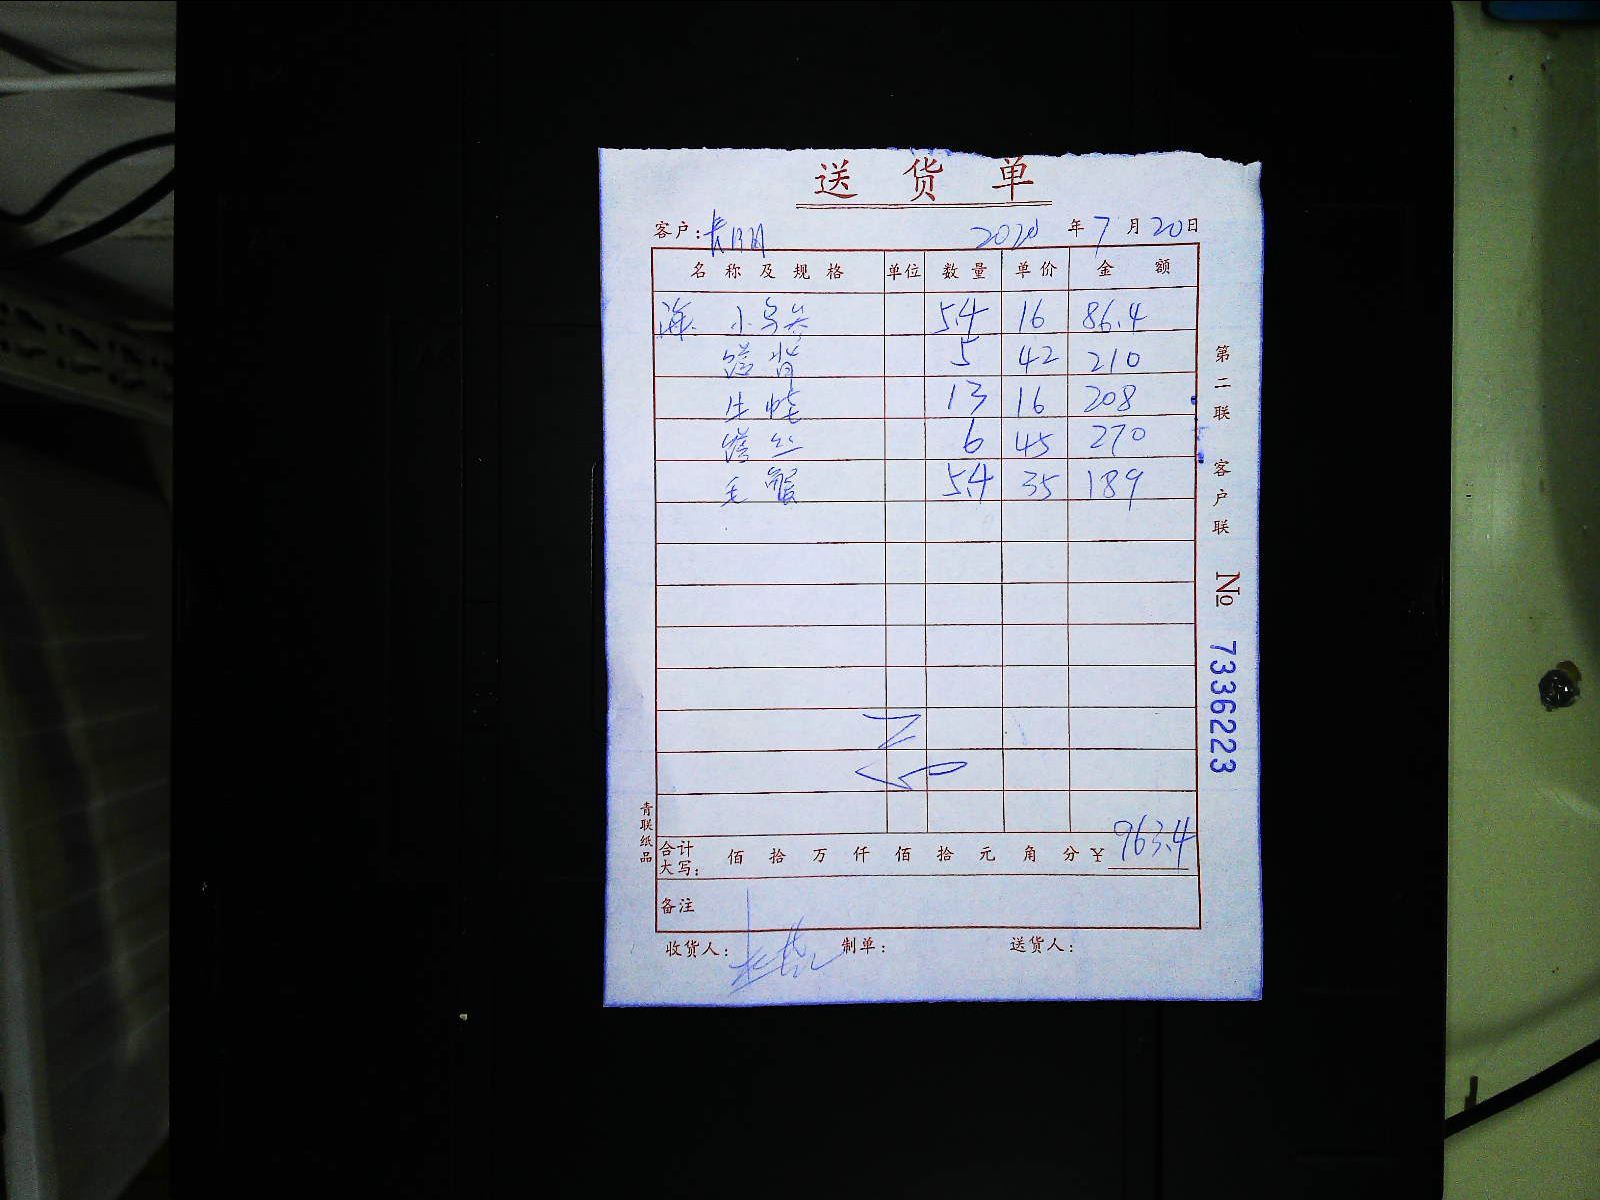 送货单
客户: 2020年7月20日
名称及规格 单位 数量 单价 金额
海 小乌 5.4 16 86.4
5 42 210
生蚝 13 16 208
丝 6 45 270
毛 5.4 35 189
合计大写: 佰 拾 万 仟 佰 拾 元 角 分 ¥ 963.4
备注
收货人: 制单: 送货人:
第二联 客户联
№ 7336223
青联纸品